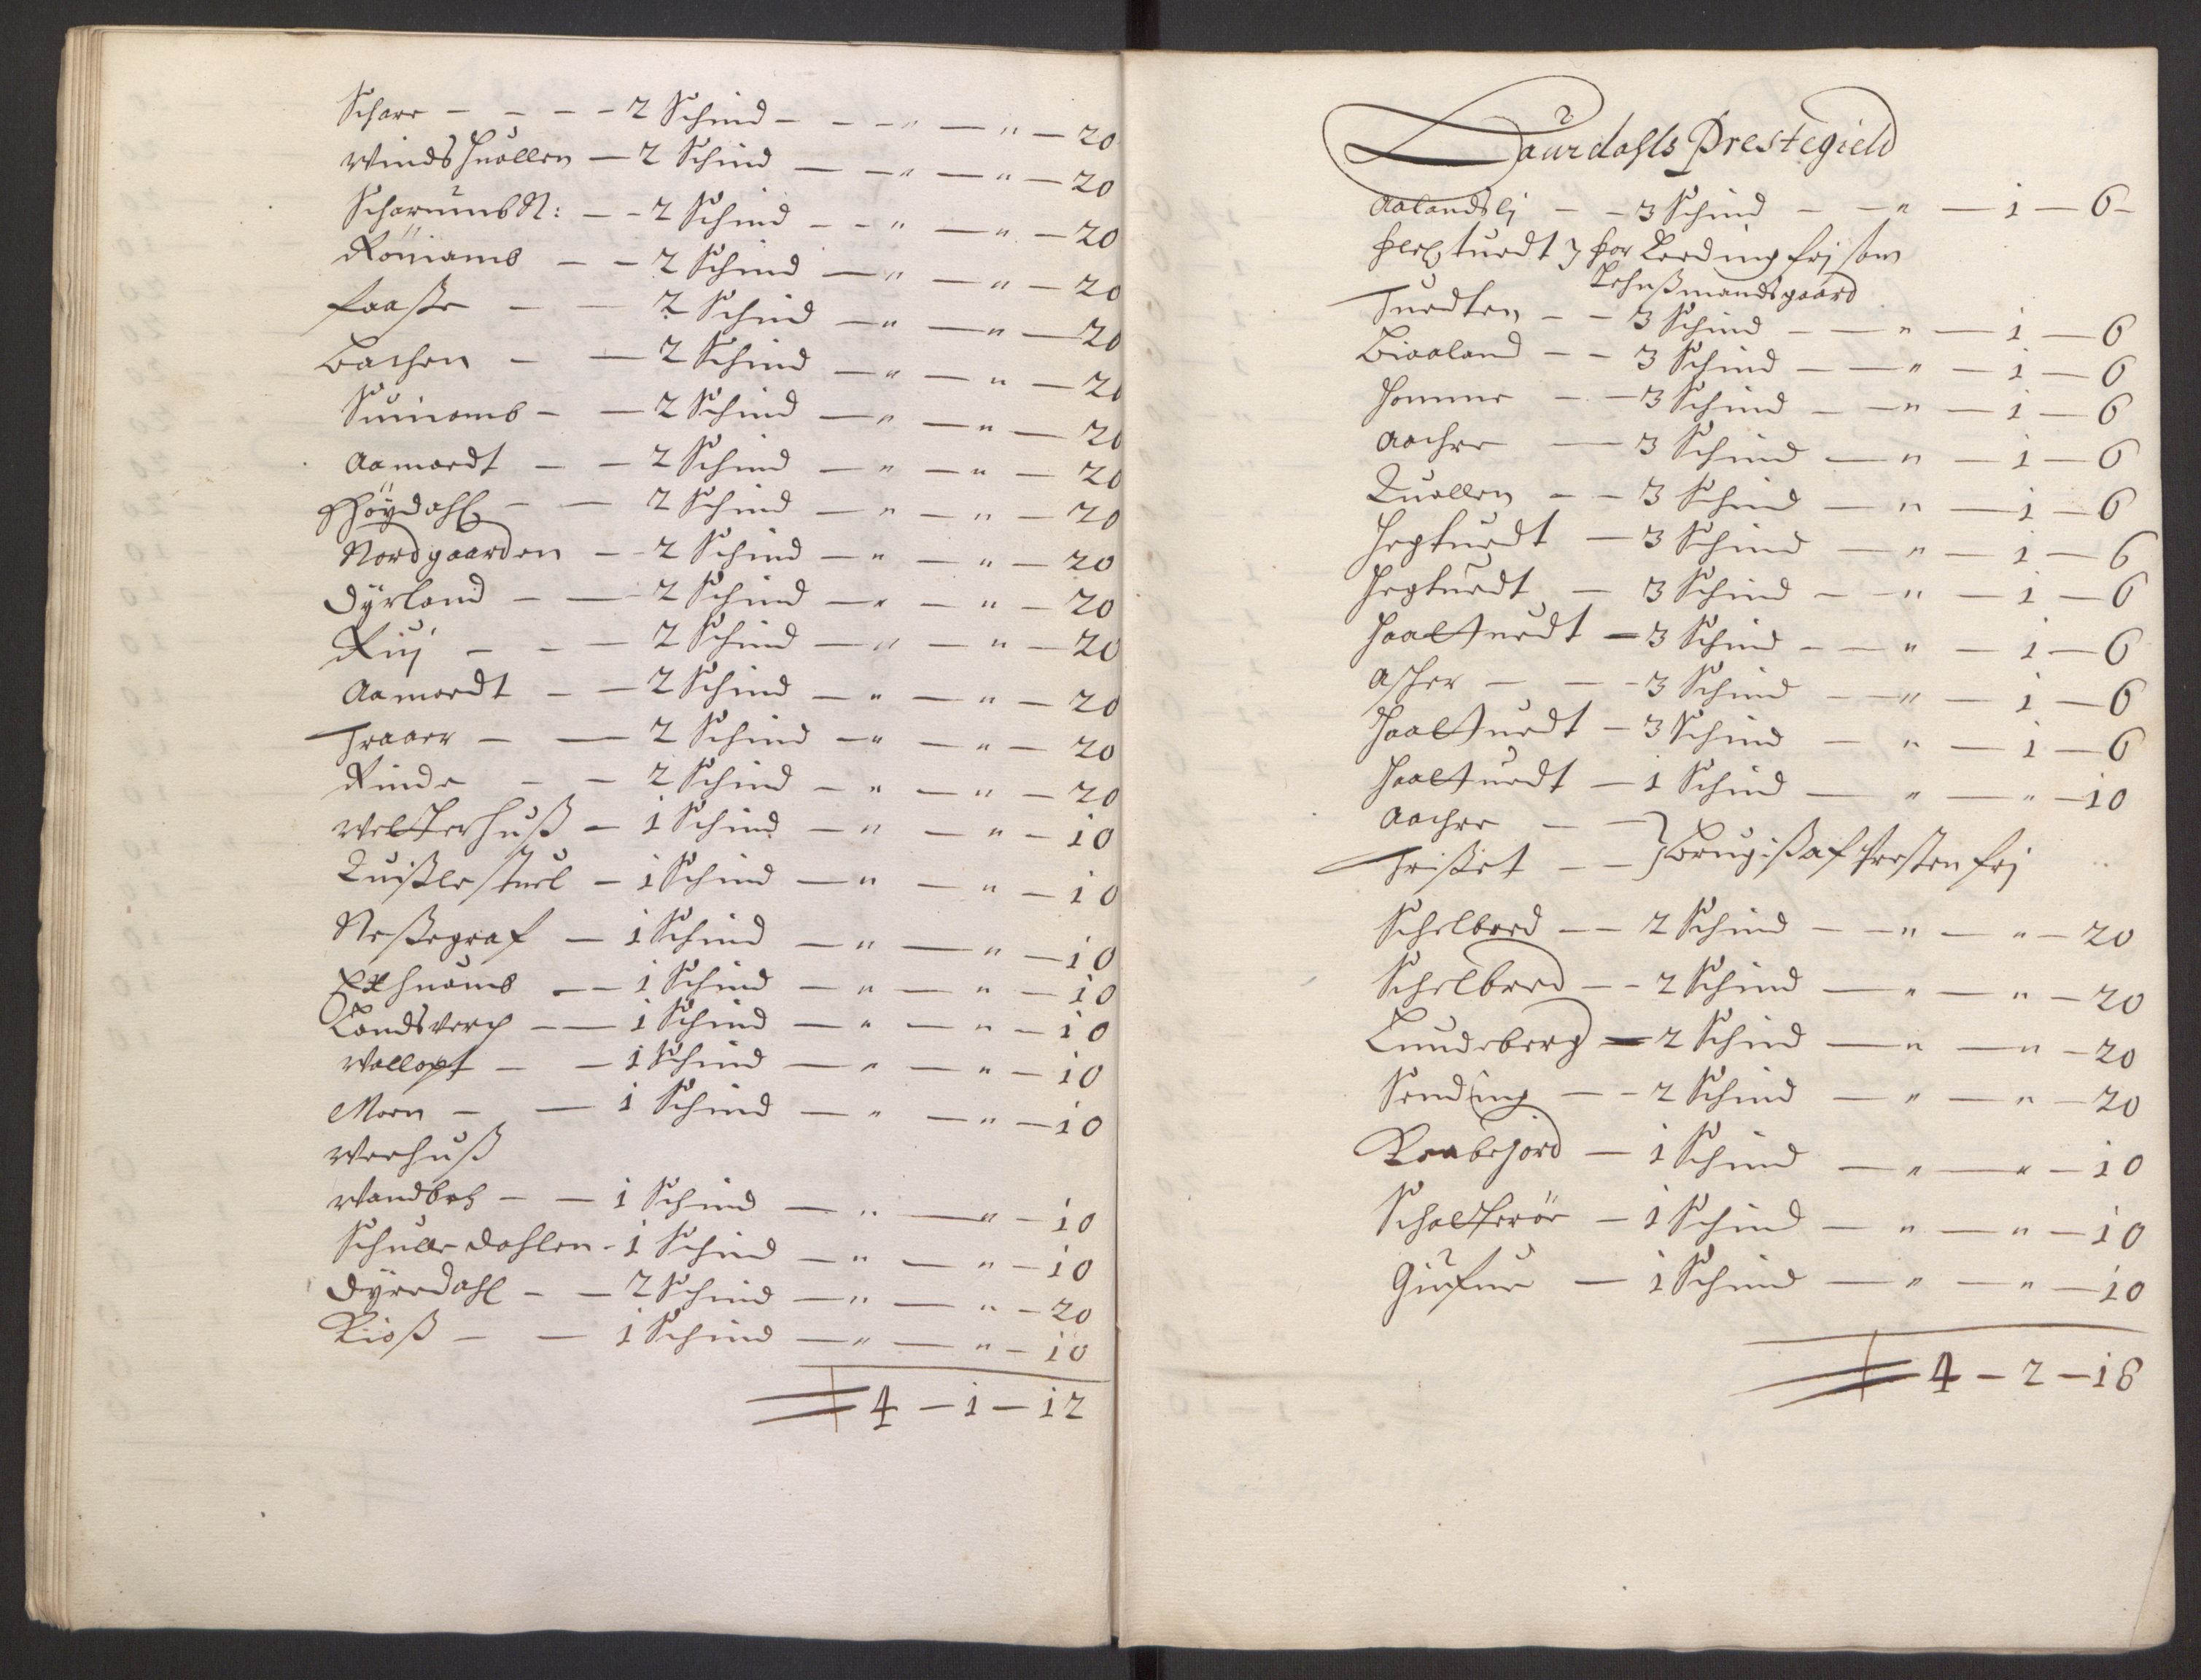 Schare - - - - 2 Schind - - - " - " - 20
Winds Huallen - 2 Schind - - " - " - 20
Scharumb N: - - 2 Schind - - " - " - 20
Röniamb - - 2 Schind - " - " - 20
faaste - - 2 Schind - " - " - 20
Bachen - - 2 Schind - " - " - 20
Sÿniamb - - 2 Schind - " - " - 20
Aamordt - - 2 Schind - " - " - 20
Höÿdahl - - 2 Schind - " - " - 20
Nordgaarden - - 2 Schind - " - " - 20
Dÿrland - - 2 Schind - " - " - 20
Ruj - - - 2 Schind - " - " - 20
Aamordt - - 2 Schind - " - " - 20
Traaer - - 2 Schind - " - " - 20
Rinde - - 2 Schind - " - " - 20
Westerhuß - 1 Schind - " - " - 10
Quißlestuel - 1 Schind - " - " - 10
Neßegraf - 1 Schind - " - " - 10
- - 1 Schind - " - " - 10
Landsverch - - 1 Schind - " - " - 10
Wallopt - - 1 Schind - " - " - 10
Moen - - 1 Schind - " - " - 10
Werhuß
Wandbech - - 1 Schind - " - " - 10
Schulledahlen - 1 Schind - " - " - 10
Dÿredahl - - 2 Schind - " - " - 20
Kioß - - 1 Schind - " - " - 10
4 - 1 - 12
Laurdahls Prestegield
Aalandslj - - 3 Schind - - " - 1 - 6 -
for Leeding frj som
Lehnßmandsgaard
Tuedten - - 3 Schind - - " - 1 - 6
Biaaland - - 3 Schind - - " - 1 - 6
Homme - - 3 Schind - - " - 1 - 6
Aachre - 3 Schind - " - 1 - 6
Quallen - - 3 Schind - " - 1 - 6
Hegtuedt - 3 Schind - " - 1 - 6
Hegtuedt - 3 Schind - - " - 1 - 6
Haastuedt - 3 Schind - - " - 1 - 6
Asker - - - 3 Schind - - " - 1 - 6
Haastuedt - 3 Schind - " - 1 - 6
Haastuedt - 1 Schind - " - " - 10
Aachre - -
Trißet - - } Brugiß af Presten frj
Schelbred - - 2 Schind - - " - " - 20
Schelbred - - 2 Schind - " - " - 20
Lundeberg - 2 Schind - " - " - 20
Sending - - 2 Schind - " - " - 20
Raabejord - 1 Schind - " - " - 10
Schalterör - 1 Schind - " - " - 10
- 1 Schind - " - " - 10
4 - 2 - 18